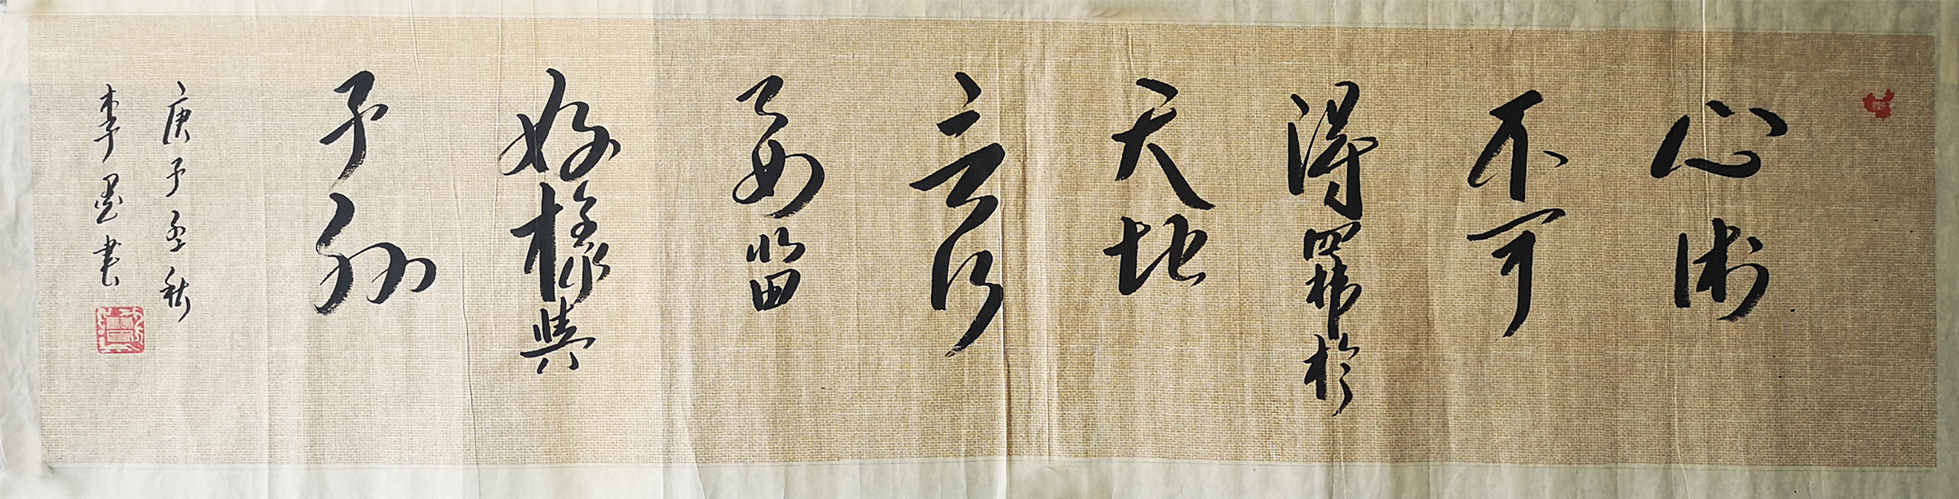 心術
不可
得罪於
天地
言行
要留
好樣與
子孫
庚子孟秋
李書